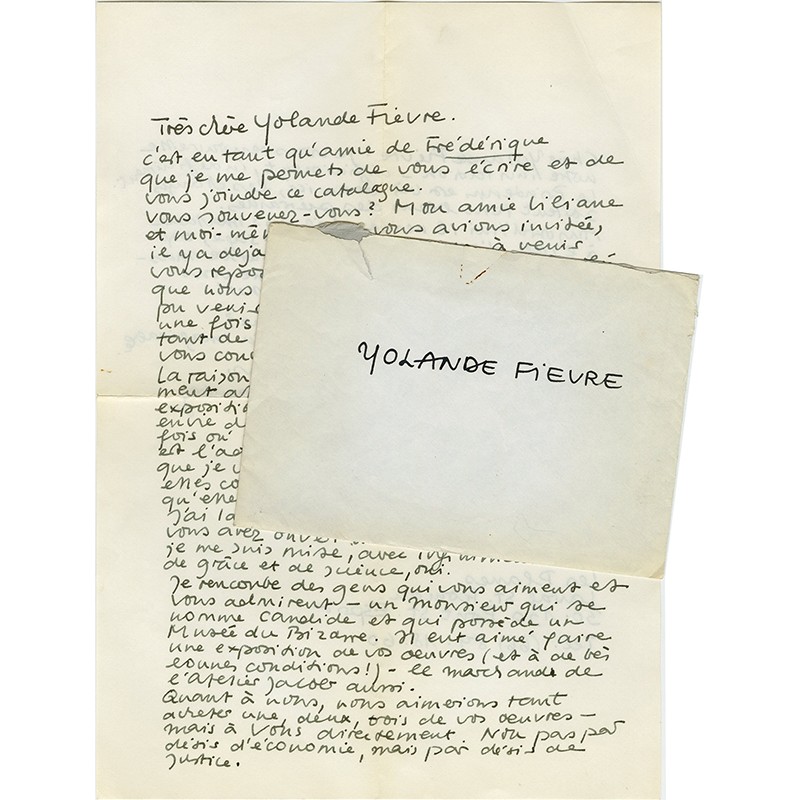 Très chère Yolande Fièvre.
c'est en tant qu'amie de Frédérique
que je me permets de vous écrire et de
vous joindre ce catalogue.
vous souvenez-vous? Mon amie Liliane
et moi-mêm vous avions invitée,
il y a déjà à venir
vous répo
que nous
pu venir
une fois
tant de
vous con
La raison
ment a
expositi
envie d
fois où
est l'a
que je v
elles co
qu'elle
J'ai la
vous avez ouve
je me suis mise, avec
de grâce et de science, oui.
Je rencontre des gens qui vous aiment et
vous admirent – un monsieur qui se
nomme Candide et qui possède un
Musée du Bizarre. Il eut aimé faire
une exposition de vos œuvres (et à de très
bonnes conditions!) – le marchand de
l'atelier Jacob aussi.
Quant à nous, nous aimerions tant
acheter une, deux, trois de vos œuvres –
mais à vous directement. Non pas par
désir d'économie, mais par désir de
justice.
YOLANDE FIEVRE